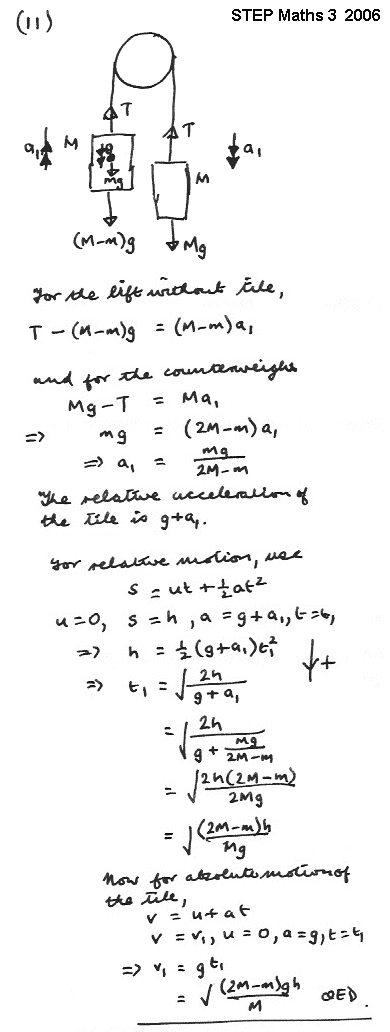 (11)
STEP Maths 3 2006
T
T
a₁
M
mg
M
a₁
(M-m)g
Mg
For the lift without tile,
T - (M-m)g = (M-m)a₁
and for the counterweight
Mg-T = Ma₁
=> mg = (2M-m)a₁
=> a₁ = mg/2M-m
The relative acceleration of
the tile is g+a₁.
For relative motion, use
s = ut + ½at²
u=0, s=h, a=g+a₁, t=t₁
=> h = ½(g+a₁)t₁²
↓+
=> t₁ = √(2h/g+a₁)
= √(2h/(g + mg/2M-m))
= √(2h(2M-m)/2Mg)
= √((2M-m)h/Mg)
Now for absolute motion of
the tile,
v = u+at
v = v₁, u=0, a=g, t=t₁
=> v₁ = gt₁
= √((2M-m)gh/M) QED.